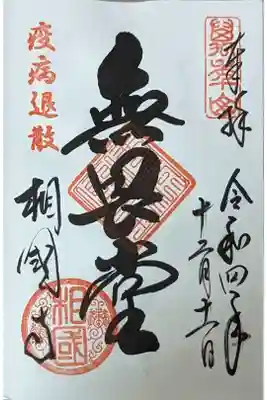 奉拝
令和四年
十二月十一日
無畏堂
疫病退散
相國寺
萬年山
相國